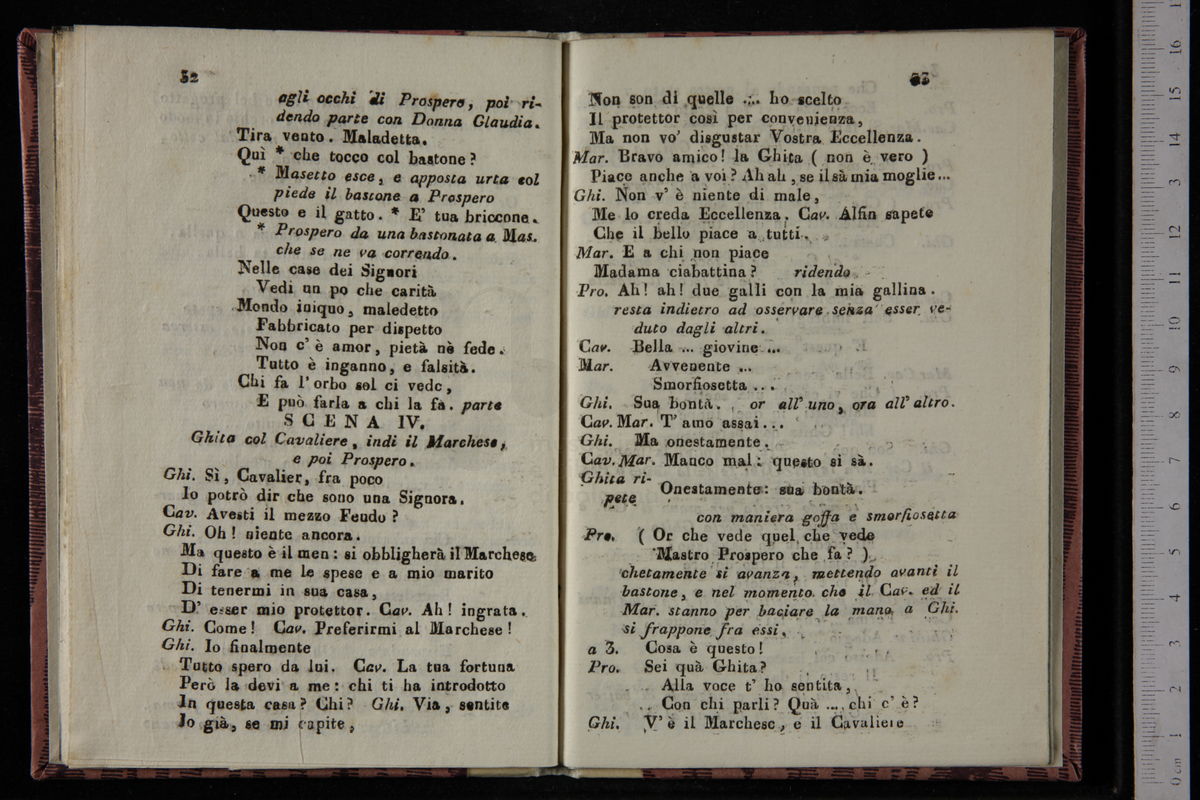 32
agli occhi di Prospero, poi ri-
dendo parte con Donna Claudia.
Tira vento. Maladetta.
Quì * che tocco col bastone?
* Masetto esce, e apposta urta col
piede il bastone a Prospero
Questo e il gatto. * E' tua briccone.
* Prospero da una bastonata a Mas.
che se ne va correndo.
Nelle case dei Signori
Vedi un po che carità
Mondo iniquo, maledetto
Fabbricato per dispetto
Non c' è amor, pietà nè fede.
Tutto è inganno, e falsità.
Chi fa l' orbo sol ci vede,
E può farla a chi la fa. parte
SCENA IV.
Ghita col Cavaliere, indi il Marchese,
e poi Prospero.
Ghi. Sì, Cavalier, fra poco
Io potrò dir che sono una Signora.
Cav. Avesti il mezzo Feudo?
Ghi. Oh! niente ancora.
Ma questo è il men: si obbligherà il Marchese
Di fare a me le spese e a mio marito
Di tenermi in sua casa,
D' esser mio protettor. Cav. Ah! ingrata.
Ghi. Come! Cav. Preferirmi al Marchese!
Ghi. Io finalmente
Tutto spero da lui. Cav. La tua fortuna
Però la devi a me: chi ti ha introdotto
In questa casa? Chi? Ghi. Via, sentite
Io già, se mi capite,
33
Non son di quelle ... ho scelto
Il protettor così per convenienza,
Ma non vo' disgustar Vostra Eccellenza.
Mar. Bravo amico! la Ghita ( non è vero )
Piace anche a voi? Ah ah, se il sà mia moglie...
Ghi. Non v' è niente di male,
Me lo creda Eccellenza. Cav. Alfin sapete
Che il bello piace a tutti.
Mar. E a chi non piace
Madama ciabattina? ridendo
Pro. Ah! ah! due galli con la mia gallina.
resta indietro ad osservare senza esser ve-
duto dagli altri.
Cav. Bella ... giovine ...
Mar. Avvenente ...
Smorfiosetta ...
Ghi. Sua bontà. or all' uno, ora all' altro.
Cav. Mar. T' amo assai...
Ghi. Ma onestamente.
Cav. Mar. Manco mal: questo si sà.
Ghita ri-
pete Onestamente: sua bontà.
con maniera goffa e smorfiosetta
Pro. ( Or che vede quel che vede
Mastro Prospero che fa? )
chetamente si avanza, mettendo avanti il
bastone, e nel momento che il Cav. ed il
Mar. stanno per baciare la mano a Ghi.
si frappone fra essi.
a 3. Cosa è questo!
Pro. Sei quà Ghita?
Alla voce t' ho sentita,
Con chi parli? Quà ... chi c' è?
Ghi. V' è il Marchese, e il Cavaliere
0 cm 1 2 3 4 5 6 7 8 9 10 11 12 13 14 15 16